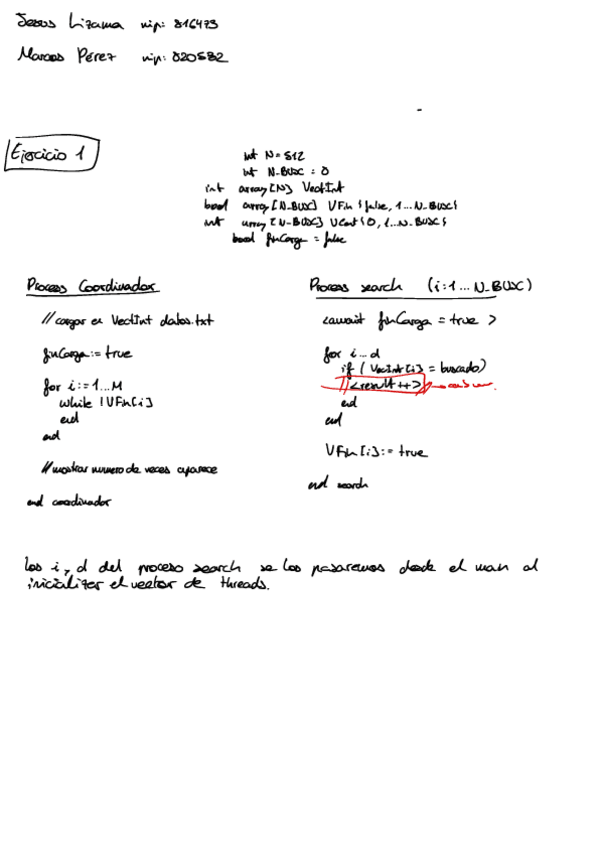 Jesus Lizama nip: 816473
Marcos Pérez nip: 820582
Ejercicio 1
int N = 512
int N_BUSC = 8
int array[N] VectInt
bool array[N_BUSC] VFin {false, 1...N_BUSC}
int array [N_BUSC] VCont {0, 1...N_BUSC}
bool finCarga = false
Proceso Coordinador
// cargar en VectInt datos.txt
finCarga := true
for i := 1...M
while !VFin[i]
end
end
// mostrar numero de veces aparece
end coordinador
Process search (i: 1... N_BUSC)
<await finCarga = true >
for i...d
if ( VectInt[i] = buscado)
// <result ++>
end
end
VFin [i] := true
end search
los i, d del proceso search se los pasaremos desde el main al
inicializar el vector de threads.